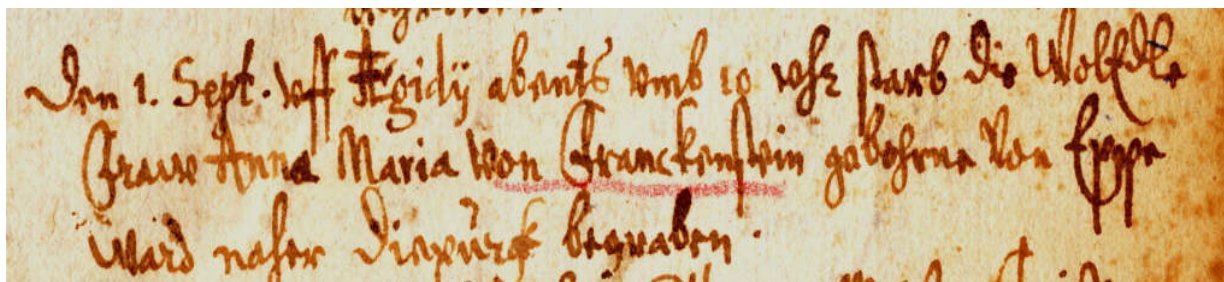 Den 1. Sept. vff Ægidij abents vmb 10 vhr starb die Woledle
Fraw Anna Maria von Franckenstein gebohrne von Eppe
ward naher Diepurg begraben.